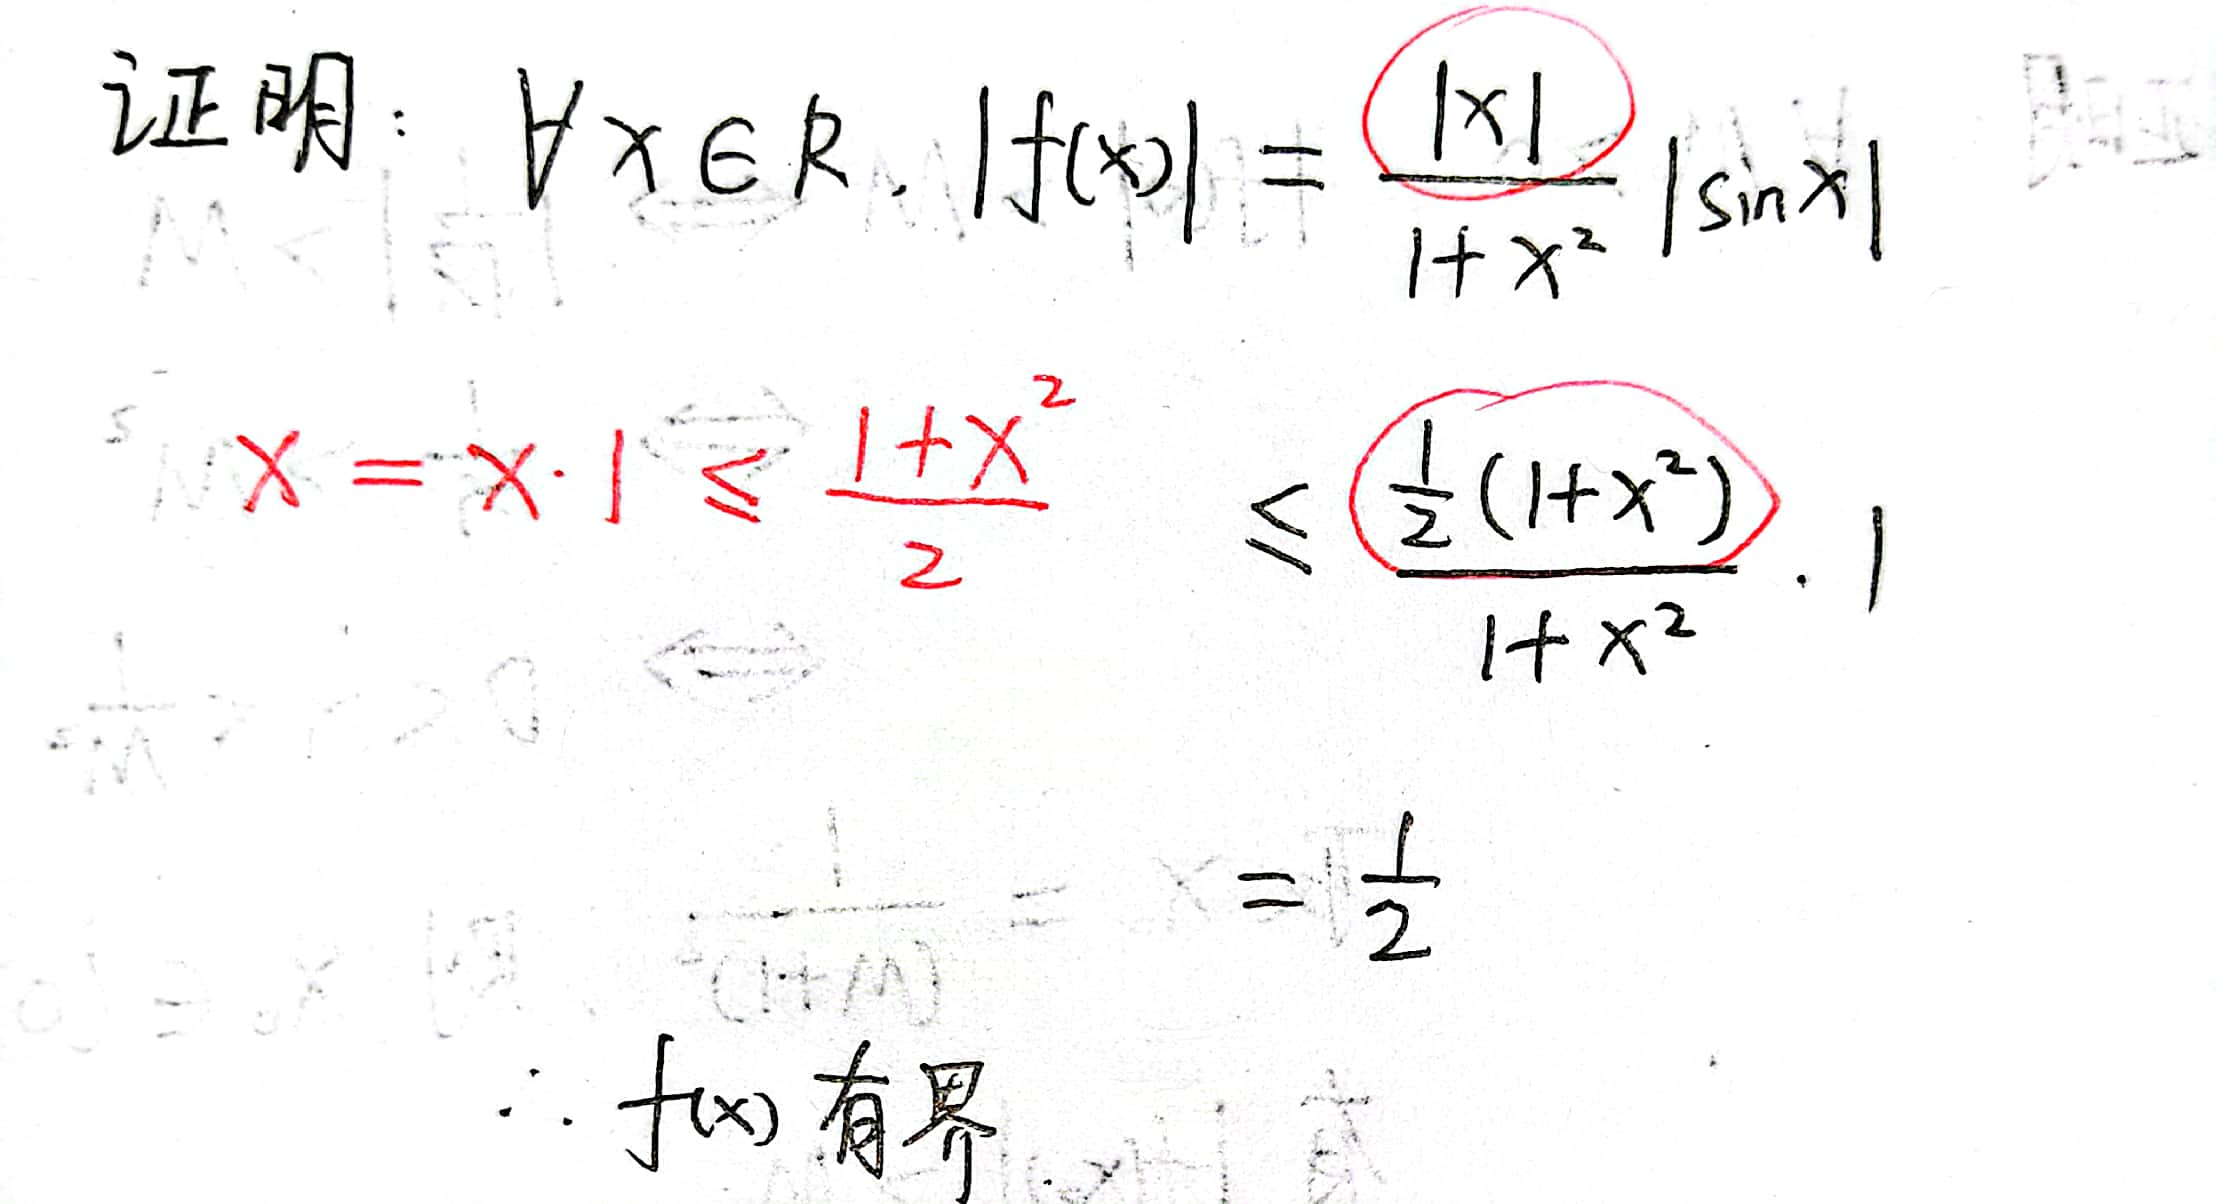 证明: ∀x∈R. |f(x)| = |x|/(1+x²) |sinx|
x = x·1 ≤ (1+x²)/2
≤ ½(1+x²)/(1+x²) · 1
= 1/2
∴ f(x) 有界.